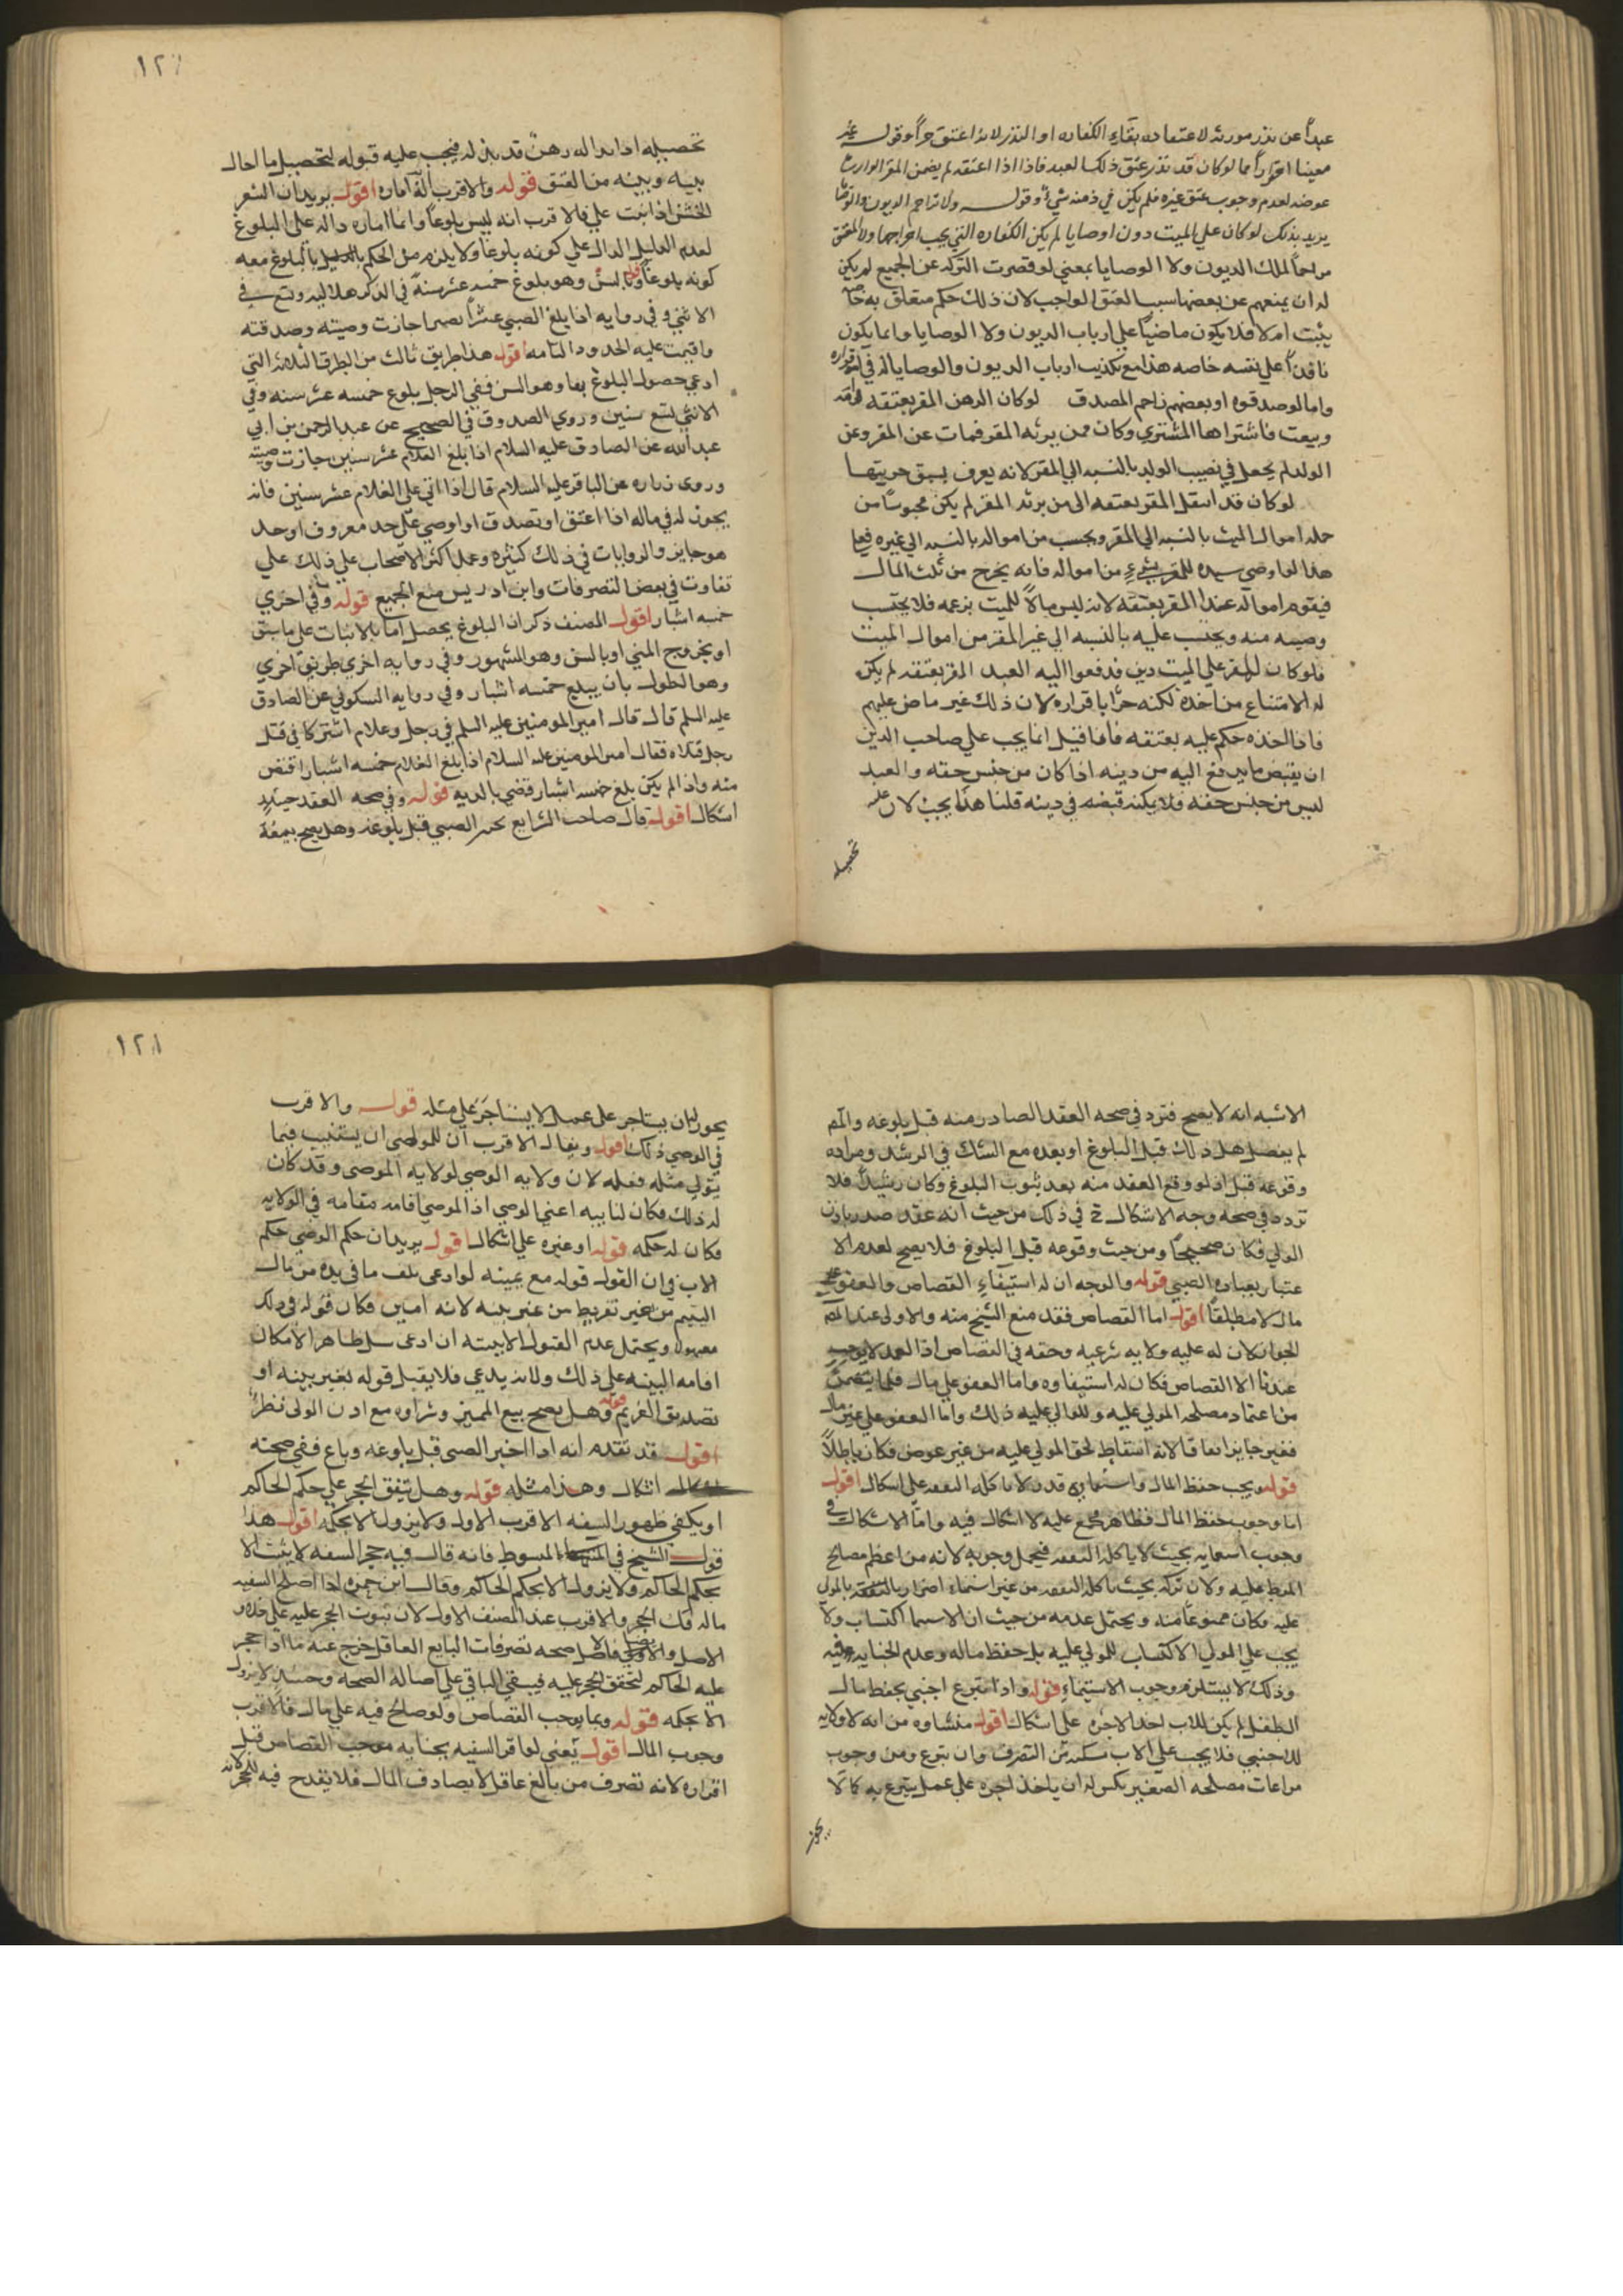 عبداً عن نذر مورثه لاعتقاده بقاء الكفاره او النذر لانه اعتق حراً وقوله
معينا احترازاً مما لوكان قد نذر عتق ذلك العبد فاذا اعتقه لم يضمن المقر الوارث
عوضه لعدم وجوب عتق غيره فلم يكن في ذمته شي وقوله ولا تزاحم الديون والوصايا
يريد بذلك لوكان على الميت دون اوصايا لم يكن الكفاره التي يجب اخراجها
مزاحماً لملك الديون ولا الوصايا بمعنى لو قصرت التركه عن الجميع لم يكن
له ان يمنعهم عن بعضها بسبب العتق الواجب لان ذلك حكم متعلق به
يثبت ام لا فلا يكون ماضياً على ارباب الديون ولا الوصايا وانما يكون
نافذاً على نفسه خاصه هذا مع تكذيب ارباب الديون والوصايا له في اقراره
واما لو صدقوه او بعضهم زاحم المصدق لوكان الرهن المقر بعتقه
وبيعت فاشتراها المشتري وكان ممن يرثه المقر فمات عن المقر وعن
الولد لم يجعل في نصيب الولد بالنسبه الى المقر لانه يعرف بسبق حريتها
لوكان قد انتقل المقر بعتقه الى من يرثه المقر لم يكن محبوساً من
جمله اموال الميت بالنسبه الى المقر ويحسب من امواله بالنسبه الى غيره فعلى
هذا لو اوصى سيده للمقر بشيء من امواله فانه يخرج من ثلث المال
فيقوم امواله عند المقر بعتقه لانه ليس مالاً للميت بزعمه فلا يحتسب
وصيه منه ويحتسب عليه بالنسبه الى غير المقر من اموال الميت
فلوكان للمقر على الميت دين فدفعوا اليه العبد المقر بعتقه لم يكن
له الامتناع من اخذه لكنه حراً باقراره لان ذلك غير ماض عليهم
فاذا اخذه حكم عليه بعتقه فاذا قيل انما يجب على صاحب الدين
ان يقبض ما يدفع اليه من دينه اذا كان من جنس حقه والعبد
ليس من جنس حقه فلا يمكنه قبضه في دينه قلنا هذا يجب لان عليه
تحصيله
١٢٠
تحصيله اذا بذاله رهن قد بذل له فيجب عليه قبوله لتحصيل ما احال
بينه وبينه من العتق قوله والاقرب انه اماره اقول يريد ان الشعر
الخشن اذا نبت على فالاقرب انه ليس بلوغاً وانما اماره داله على البلوغ
لعدم الدليل الدال على كونه بلوغاً ولا يلزم من الحكم بالبلوغ معه
كونه بلوغاً والسن وهو بلوغ خمسه عشر سنه في الذكر هلاليه وتسع في
الانثى وفي روايه اذا بلغ الصبي عشراً بصيرا جازت وصيته وصدقته
واقيمت عليه الحدود التامه اقول هذا طريق ثالث من الطرق الثلاثه التي
ادعي حصول البلوغ بها وهو السن ففي الرجل بلوغ خمسه عشر سنه وفي
الانثى لتسع سنين وروى الصدوق في الصحيح عن عبدالرحمن بن ابي
عبدالله عن الصادق عليه السلام اذا بلغ الغلام عشر سنين جازت وصيته
وروى زراره عن الباقر عليه السلام قال اذا اتى على الغلام عشر سنين فانه
يجوز له في ماله اذا اعتق او تصدق او اوصى على حد معروف او حد
هو جايز والروايات في ذلك كثيره وعمل اكثر الاصحاب على ذلك على
تفاوت في بعض التصرفات وابن ادريس منع الجميع قوله وفي اخرى
خمسه اشبار اقول المصنف ذكر ان البلوغ يحصل اما بالانبات على ما سبق
او بخروج المني او بالسن وهو المشهور وفي روايه اخرى طريق اخرى
وهو الطول بان يبلغ خمسه اشبار وفي روايه السكوني عن الصادق
عليه السلم قال قال امير المومنين عليه السلم في رجل وغلام اشتركا في قتل
رجل قتلاه فقال امير المومنين عليه السلام اذا بلغ الغلام خمسه اشبار اقتص
منه واذا لم يكن بلغ خمسه اشبار قضي بالديه قوله وفي صحه العقد حينئذ
اشكال اقول قال صاحب الشرايع الصبي قبل بلوغه وهل يصح بيعه
الاشبه انه لا يصح فتردد في صحه العقد الصادر منه قبل بلوغه والمصنف
لم يفصل هل ذلك قبل البلوغ او بعده مع الشك في الرشد ومراده
وقوعه قبل اذ لو وقع العقد منه بعد ثبوت البلوغ وكان رشيداً فلا
تردد في صحه وجه الاشكال في ذلك من حيث انه عقد صدر باذن
الولي فكان صحيحاً ومن حيث وقوعه قبل البلوغ فلا يصح لعدم الا
عتبار بعباره الصبي قوله والوجه ان له استيفاء القصاص والعفو على
مال لا مطلقاً اقول اما القصاص فقد منع الشيخ منه والاولى عند المصنف
الجواز لان له عليه ولايه شرعيه وحقه في القصاص اذ العمد لا يوجب
عندنا الا القصاص فكان له استيفاوه واما العفو على مال
من اعتماد مصلحه المولى عليه وللوالي عليه ذلك واما العفو على غير مال
فغير جايز اتفاقا لانه اسقاط لحق المولى عليه من غير عوض فكان باطلاً
قوله ويجب حفظ المال واستنمايه قدر لا تاكله النفقه على اشكال اقول
اما وجوب حفظ المال فظاهر مجمع عليه لا اشكال فيه واما الاشكال في
وجوب استنمايه بحيث لا ياكله النفقه فيحتمل وجوبه لانه من اعظم مصالح
المولى عليه ولان تركه بحيث تاكله النفقه من غير استنماء اضرار بالمولى
عليه فكان ممنوعاً منه ويحتمل عدمه من حيث ان الاستنما اكتساب ولا
يجب على المولى الاكتساب للمولى عليه بل حفظ ماله وعدم الخيانه فيه
وذلك لا يستلزم وجوب الاستنماء قوله واذا تبرع اجنبي بحفظ مال
الطفل لم يكن للاب اخذ الاجره على اشكال اقول منشاوه من انه لا ولايه
للاجنبي فلا يجب على الاب تمكينه من التصرف وان تبرع ومن وجوب
مراعات مصلحه الصغير له ان ياخذ اجره على عمل يتبرع به كما لا
يجوز
١٢١
يجوز ان يستاجر على عمل لا يستاجر على مثله قوله والاقرب
في الوصي ذلك اقول ويقال الاقرب ان للوصي ان يستنيب فيما
يتولى مثله فعله لان ولايه الوصي لولايه الموصى وقد كان
له ذلك فكان لنايبه اعني الوصي اذ الموصي اقامه مقامه في الولايه
فكان له حكمه قوله او غيره على اشكال اقول يريد ان حكم الوصي حكم
الاب في ان القول قوله مع يمينه لو ادعى تلف ما في يده من مال
اليتيم من غير تفريط من غير بينه لانه امين فكان قوله في ذلك
مقبولا ويحتمل عدم القبول الا ببينه ان ادعى سلـ ظاهرا لامكان
اقامه البينه على ذلك ولانه يدعي فلا يقبل قوله بغير بينه او
تصديق الغريم قوله وهل يصح بيع المميز وشراوه مع اذن الولى نظر
اقول قد تقدم انه اذا اختبر الصبي قبل بلوغه وباع ففي صحته
اشكال وهذا مثله قوله وهل يتفق الحجر على حكم الحاكم
او يكفي ظهور السفه الاقرب الاول ولا يزول الا بحكمه اقول هذا
قول الشيخ في المبسوط فانه قال فيه حجر السفه لا يثبت الا
بحكم الحاكم ولا يزول الا بحكم الحاكم وقال ابن حمزه اذا اصلح السفيه
ماله فك الحجر والاقرب عند المصنف الاول لان ثبوت الحجر عليه على خلاف
الاصل فالاصل صحه تصرفات البايع العاقل خرج عنه ما اذا حجر
عليه الحاكم لتحقق الحجر عليه فيبقى الباقي على اصاله الصحه وحينئذ لا يزول
الا بحكمه قوله وبما يوجب القصاص ولو صالح فيه على مال فالاقرب
وجوب المال اقول يعني لو اقر السفيه بجنايه موجب القصاص قبل
اقراره لانه تصرف من بالغ عاقل لا يصادف المال فلا يقدح فيه الحجر لانه